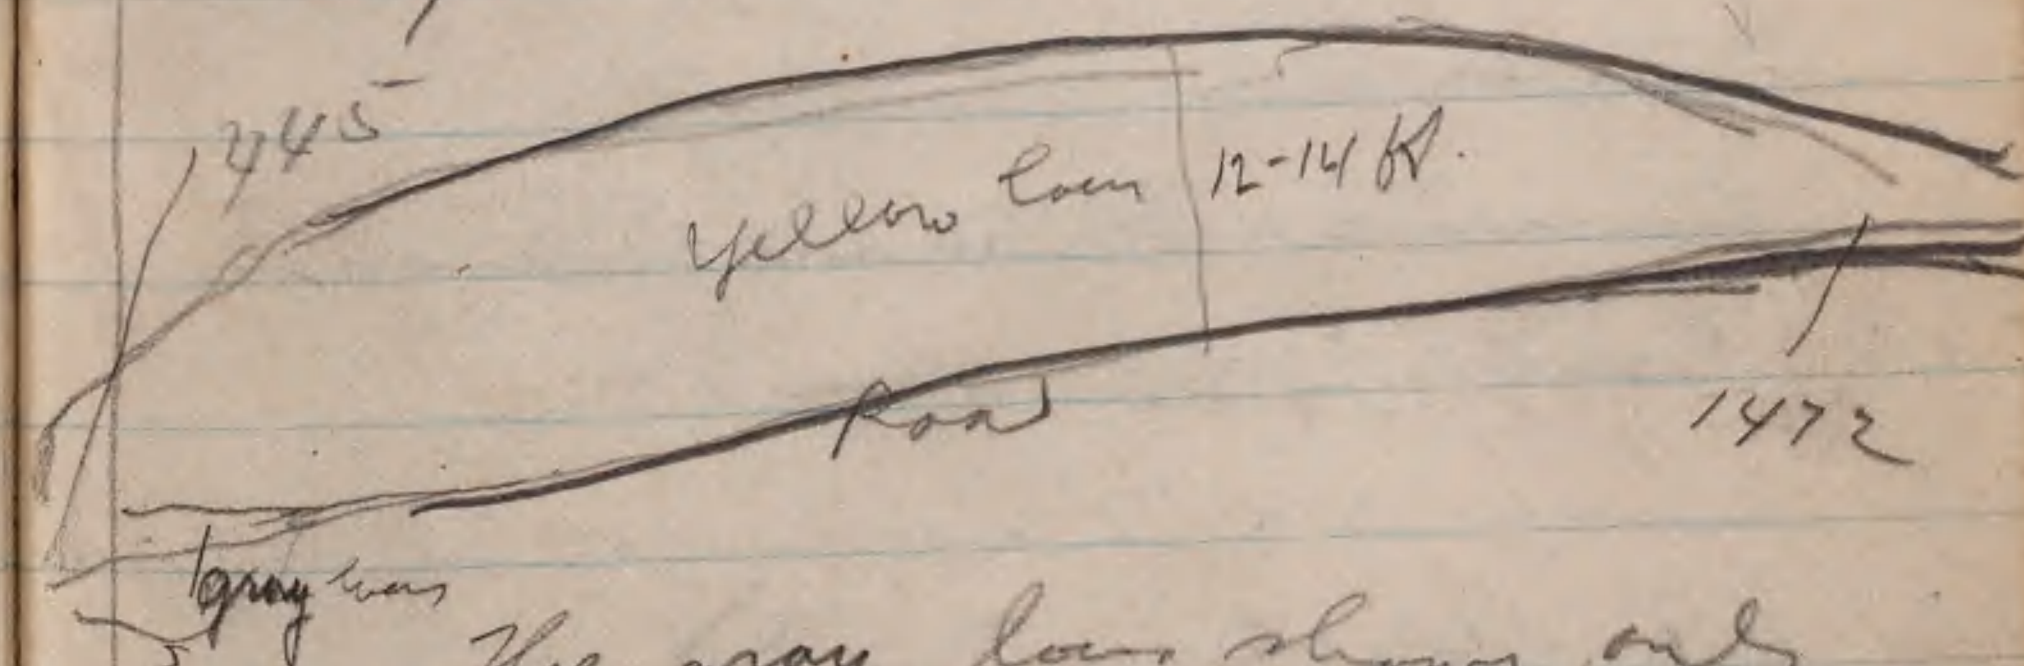 1445
Yellow loess 12-14 ft.
Road
1472
gray loess
The gray loess shows only